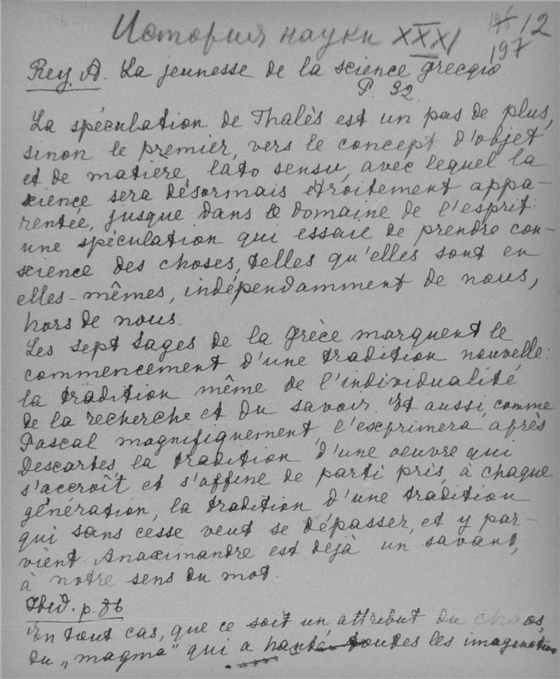 История науки XXXI 12
197
Rey. A. La jeunesse de la science grecque
P. 92
La spéculation de Thalès est un pas de plus,
sinon le premier, vers le concept d'objet
et de matière, lato sensu, avec lequel la
science sera désormais étroitement appa-
rentée, jusque dans le domaine de l'esprit:
une spéculation qui essaie de prendre con-
science des choses, telles qu'elles sont en
elles-mêmes, indépendamment de nous,
hors de nous.
Les sept sages de la Grèce marquent le
commencement d'une tradition nouvelle:
la tradition même de l'individualité
de la recherche et du savoir. Et aussi, comme
Pascal magnifiquement l'exprimera après
Descartes la tradition d'une oeuvre qui
s'accroît et s'affine de parti pris, à chaque
génération, la tradition d'une tradition
qui sans cesse veut se dépasser, et y par-
vient. Anaximandre est déjà un savant,
à notre sens du mot.
Ibid. p. 86
En tout cas, que ce soit un attribut du chaos,
du „magma“ qui a hanté toutes les imagination